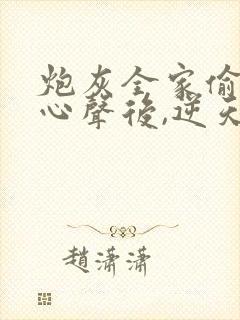 炮灰全家偷
心聲後,逆天
趙潇潇